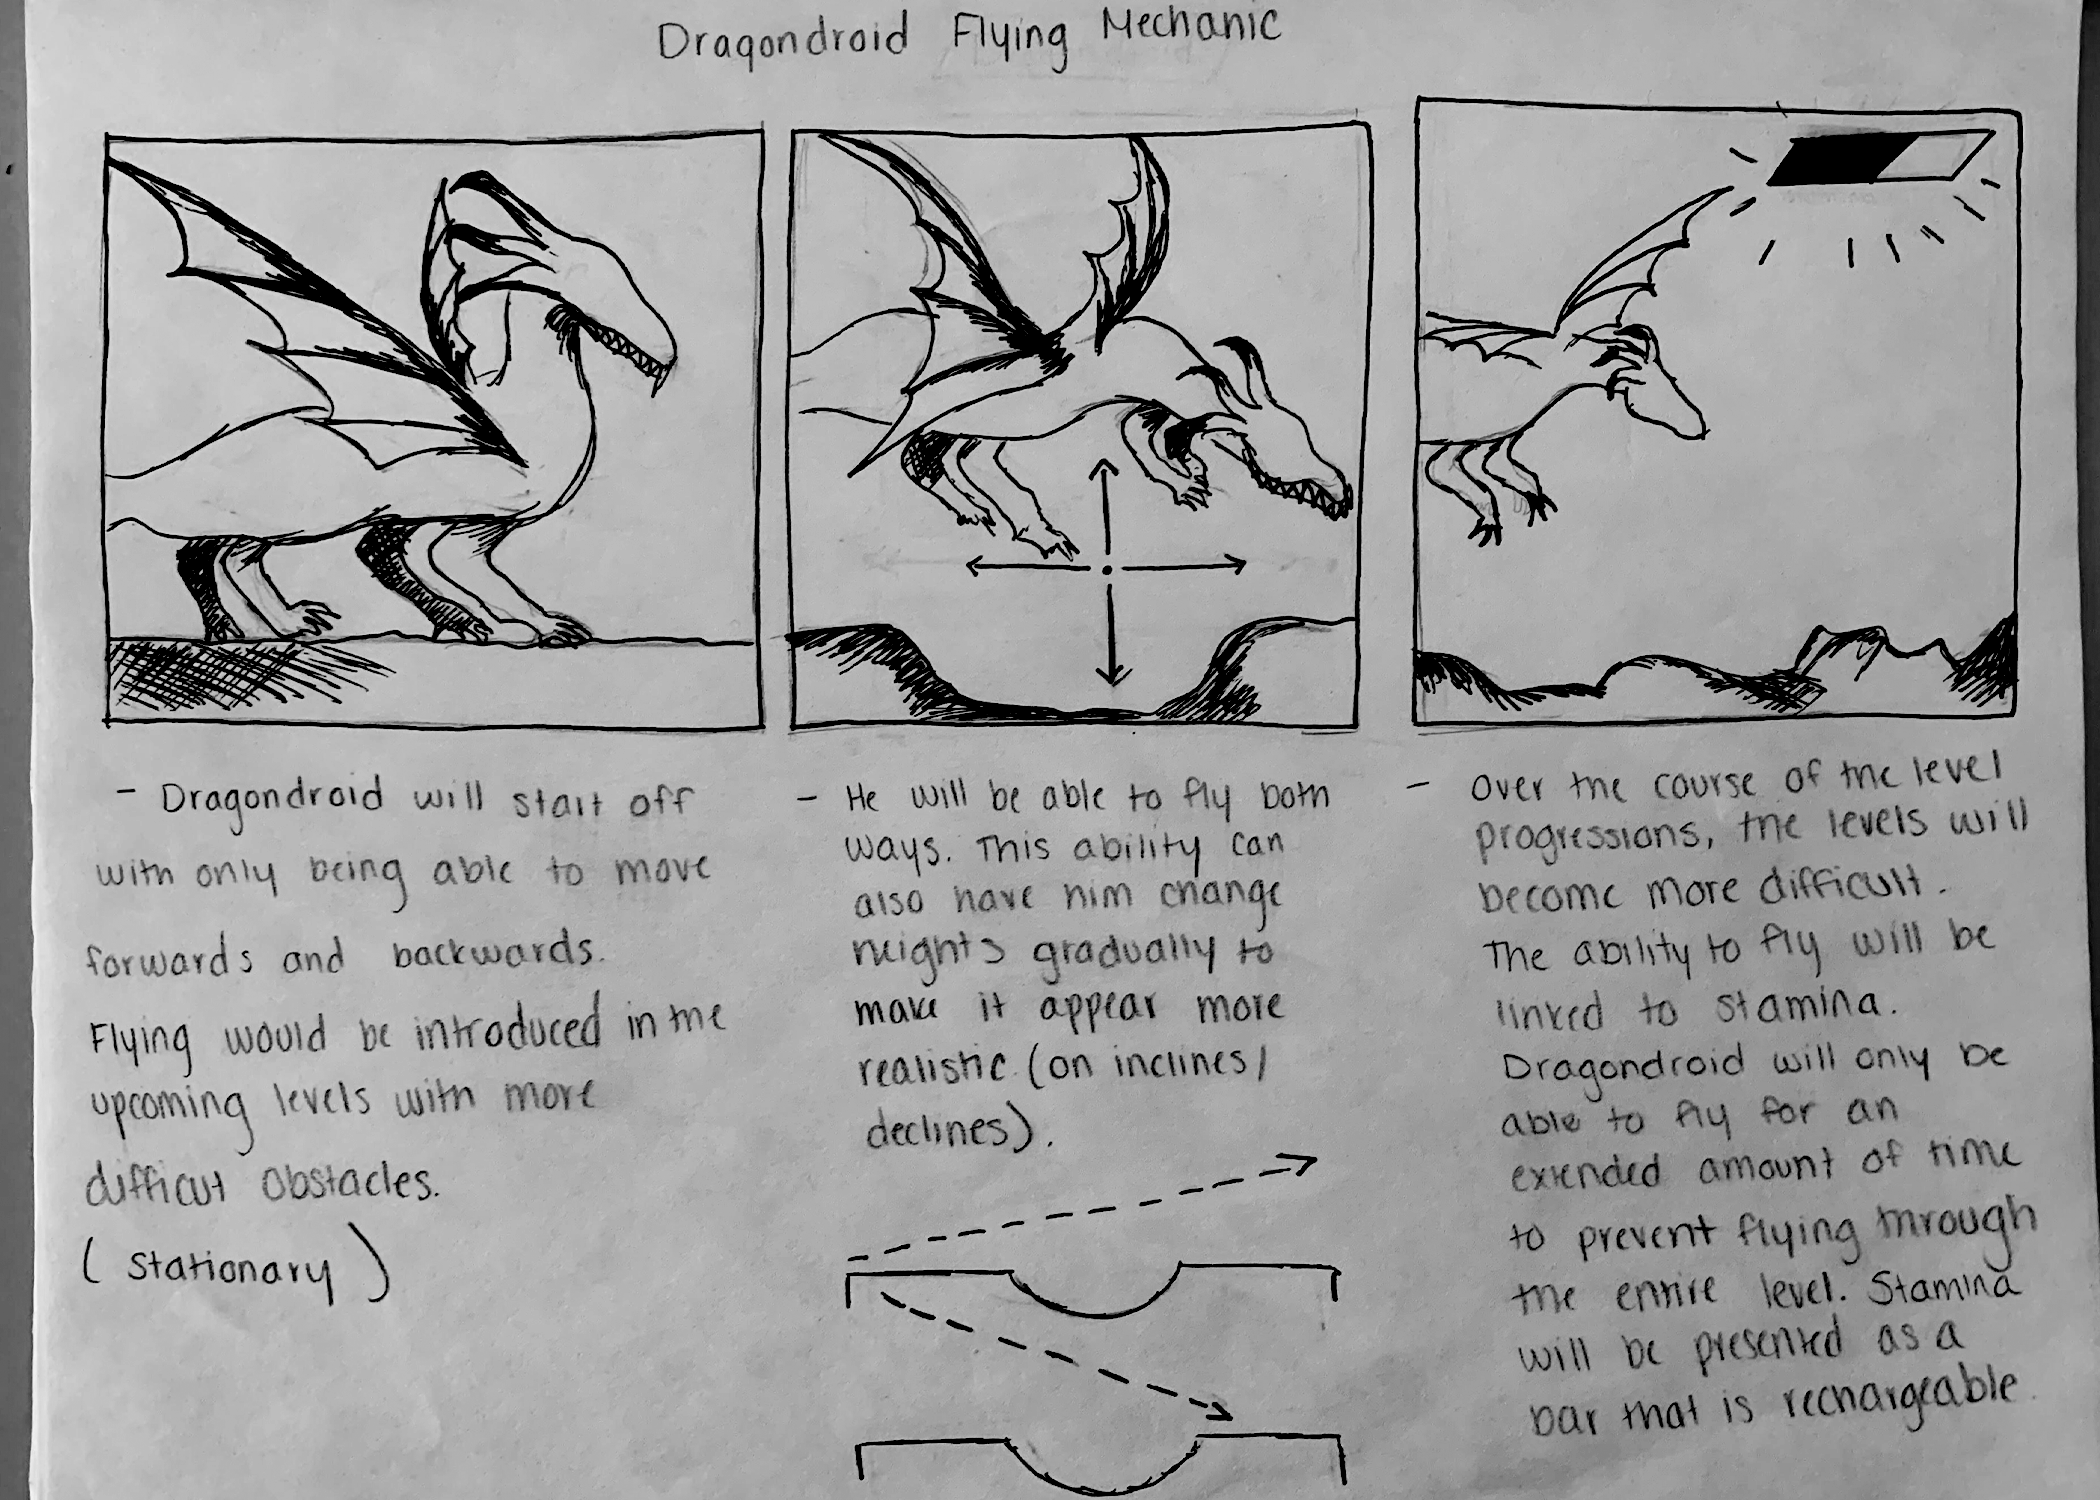 Dragondroid Flying Mechanic
- Dragondroid will start off
with only being able to move
forwards and backwards.
Flying would be introduced in the
upcoming levels with more
difficut obstacles.
(Stationary)
- He will be able to fly both
ways. This ability can
also have him change
heights gradually to
make it appear more
realistic (on inclines/
declines).
- Over the course of the level
progressions, the levels will
become more difficult.
The ability to fly will be
linked to stamina.
Dragondroid will only be
able to fly for an
extended amount of time
to prevent flying through
the entire level. Stamina
will be presented as a
bar that is rechargeable.